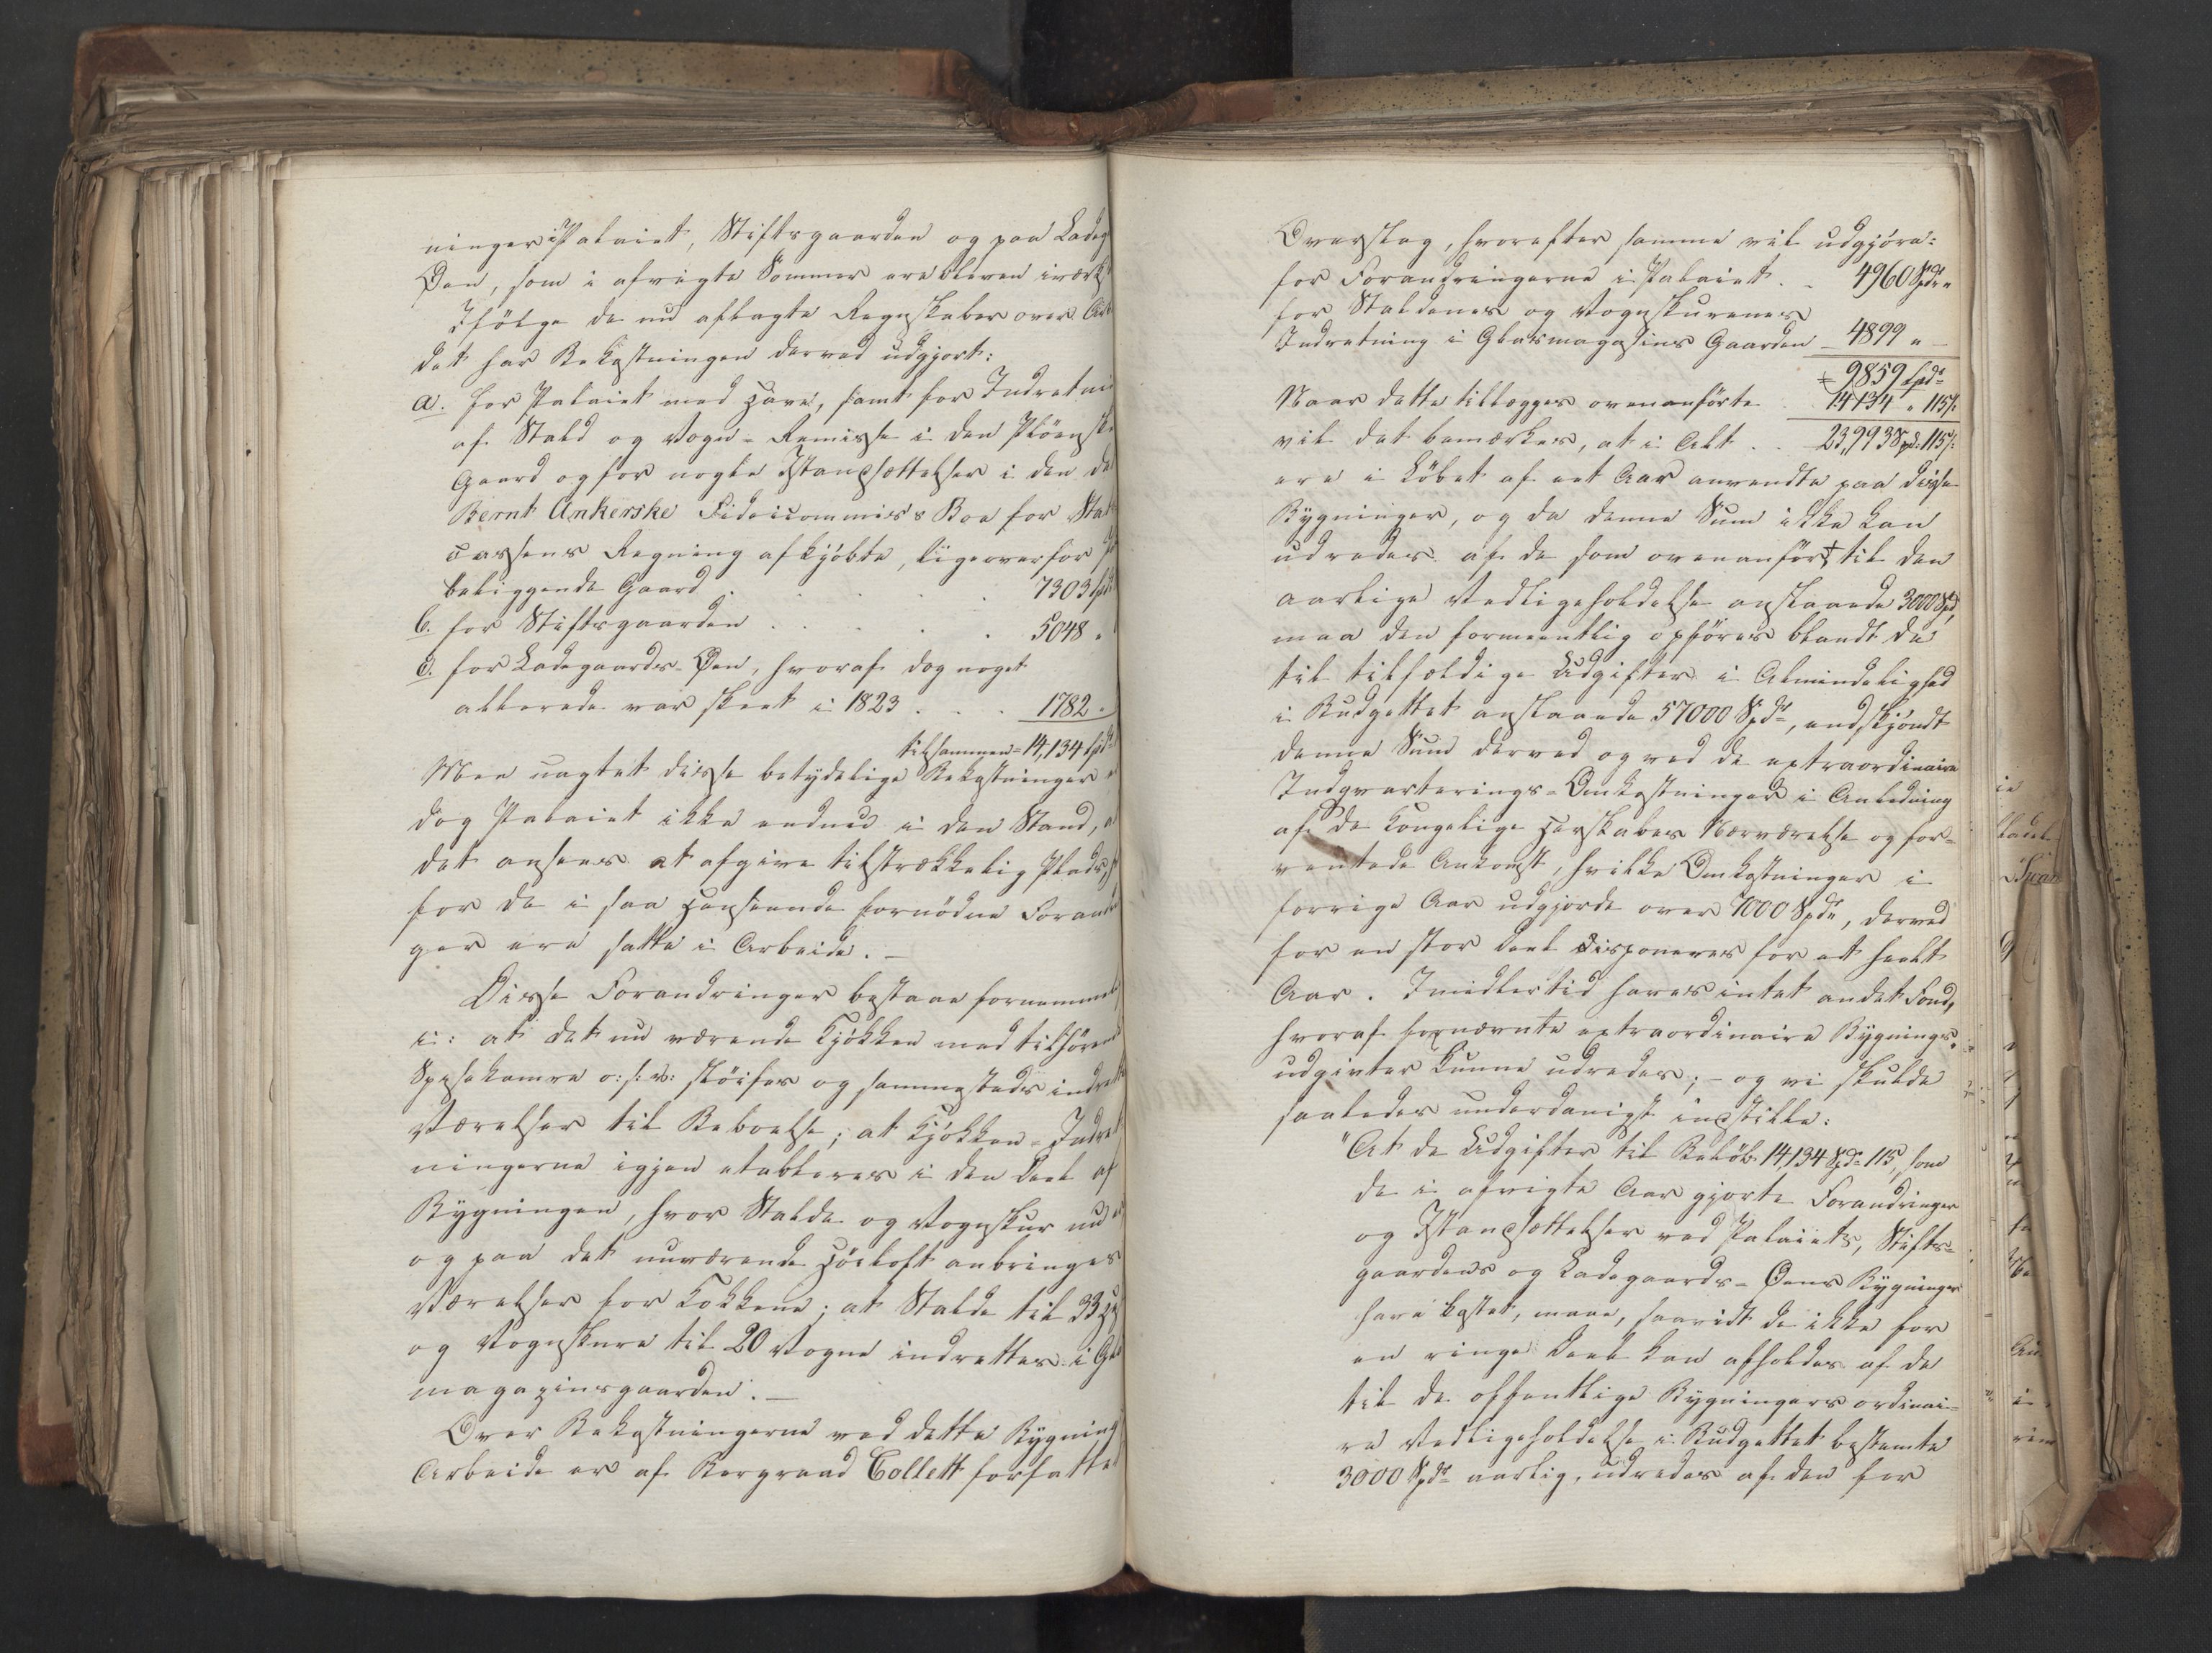 ninger i Palaiet, Stiftsgaarden og paa Ladeg
Øen, som i afvigte Sommer ere blevne iværks
Ifølge de nu aflagte Regnskaber over
det har Bekostningen derved udgjort:
a. for Palaiet med Have, samt for Indretni
af Stald og Vogn-Remisse i den Plöensk
Gaard og for nogle Istandsættelser i den de
Bernt Ankerske Fideicommiss Boe for Stat
cassens Regning afkjöbte, ligeoverfor P
beliggende Gaard . . . . . 7303 spd
b. for Stiftsgaarden . . . . . 5048 "
c. for Ladegaards-Øen, hvoraf dog noget
allerede var skeet i 1823 . . . 1782 "
tilsammen = 14,134 spdr
Men uagtet disse betydelige Bekostninger e
dog Palaiet ikke endnu i den Stand, a
det ansees at afgive tilstrækkelig Plads, h
for de i saa Henseende fornödne Forand
ger ere satte i Arbeide. —
Disse Forandringer bestaae fornemmel
i: at det nu værende Kjökken med tilhören
Spisekamre o: s: v: slöifes og sammesteds indrett
Værelser til Beboelse; at Kjökken-Indret
ningerne igjen etableres i den Deel af
Bygningen, hvor Stalde og Vognskur nu e
og paa det nuværende Höeloft anbringes
Værelser for Kokkene; at Stalde til 33 He
og Vognskure til 20 Vogne indrettes i Gla
magazinsgaarden. —
Over Bekostningerne ved dette Bygning
Arbeide er af Bergraad Collett forfattet
Overslag, hvorefter samme vil udgjöre:
for Forandringerne i Palaiet . . 4960 Spdr "
for Staldenes og Vognskurenes
Indretning i Glasmagasins Gaarden 4899 " —
= 9859 spdr
Naar dette tillægges ovenanförte . 14134 " 115 ſ:
vil det bemærkes, at i Alt . . 23,993 Spd: 115 ſ:
ere i Löbet af eet Aar anvendte paa disse
Bygninger, og da denne Sum ikke kan
udredes af de som ovenanfört til den
aarlige Vedligeholdelse anslaaede 3000 Spd,
maa den formeentlig opföres blandt de
til tilfældige Udgifter i Almindelighed
i Budgettet anslaaede 57000 Spdr, endskjöndt
denne Sum derved og ved de extraordinaire
Indqvarterings-Omkostninger i Anledning
af de Kongelige Herskabers Nærværelse og for-
ventede Ankomst, hvilke Omkostninger i
forrige Aar udgjorde over 7000 Spdr, derved
for en stor Deel disponeres for et heelt
Aar. Imidlertid haves intet andet Fond,
hvoraf fornævnte extraordinaire Bygnings-
udgivter kunne udredes; — og vi skulde
saaledes underdanigst indstille:
"At de Udgifter til Belöb 14,134 Spdr 115, som
de i afvigte Aar gjorte Forandringer
og Istandsættelser ved Palaiets, Stifts-
gaardens og Ladegaards-Øens Bygninger
have kostet, maae, saavidt de ikke for
en ringe Deel kan afholdes af de
til de offentlige Bygningers ordinai-
re Vedligeholdelse i Budgettet bestemte
3000 Spdr aarlig, udredes af den for